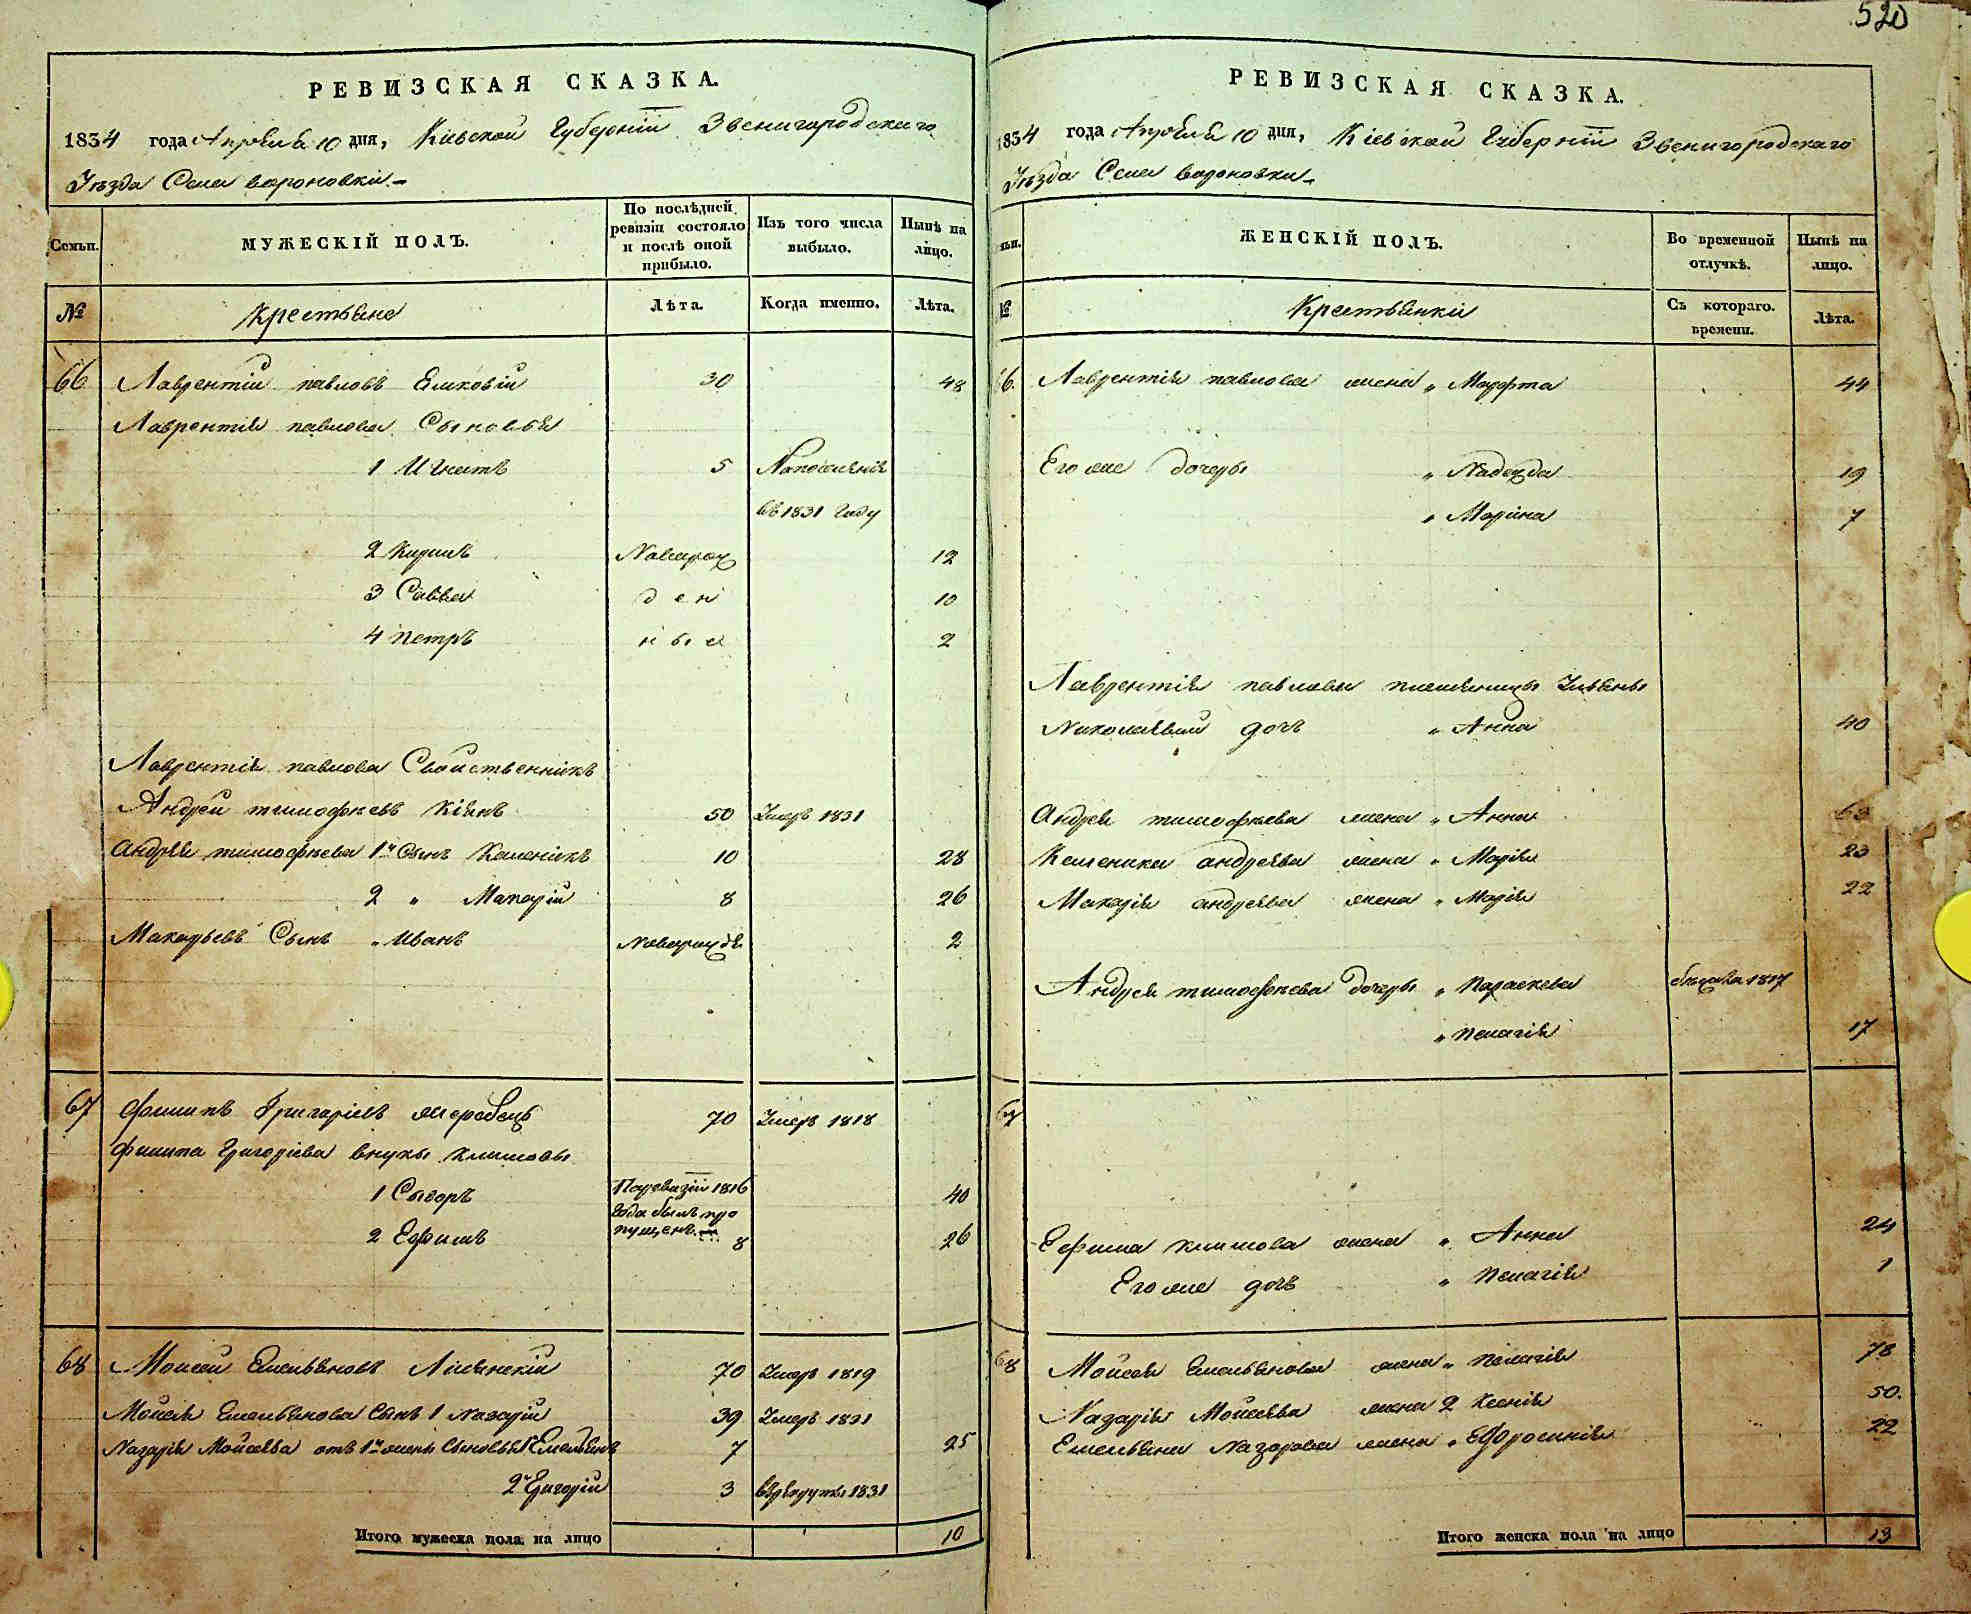 520
РЕВИЗСКАЯ СКАЗКА.
1834 года Апреля 10 дня, Кіевской Губерніи Звенигородскаго
Уѣзда Села Вороновки
Семьи.
МУЖЕСКІЙ ПОЛЪ.
По послѣдней ревизіи состояло и послѣ оной прибыло.
Изъ того числа выбыло.
Нынѣ на лицо.
№
Крестьяне
Лѣта.
Когда именно.
Лѣта.
66 Лаврентій павловъ 30 48
Лаврентія павлова Сыновья
1 Игнатъ 5
въ 1831 году
2 Кирилъ Новорож 12
3 Савва ден 10
4 Петръ ные 2
Лаврентія павлова Свойственникъ
Андрей тимофѣевъ Кіянъ 50 Умеръ 1831
Андрея тимофѣева 1й Сынъ Каленикъ 10 28
2 „ Макарій 8 26
Макарьевъ Сынъ „ Иванъ новорожде 2
67 Филипъ Григоріевъ жеребецъ 70 Умеръ 1818
Филипа Григоріева внуки климовы
1 Сидоръ Поревизіи 1816 40
года былъ про
пущенъ
2 Ефимъ 8 26
68 Моисей Емельяновъ Лисянскій 70 Умеръ 1819
Моисея Емельянова Сынъ 1 Назарій 39 Умеръ 1831
Назарія Моисеева отъ 1й жены Сыновья 1 Емельянъ 7 25
2й Григорій 3 врекруты 1831
Итого мужеска пола на лицо 10
РЕВИЗСКАЯ СКАЗКА.
1834 года Апреля 10 дня, Кіевской Губерніи Звенигородскаго
Уѣзда Села Вороновки
ьи.
ЖЕНСКІЙ ПОЛЪ.
Во временной отлучкѣ.
Нынѣ на лицо.
№
Крестьянки
Съ котораго. времени.
Лѣта.
6. Лаврентія павлова жена „ Марфта 44
Его же дочеры „ Надежда 19
„ Марина 7
Лаврентія павлова племяницы Ульяны
Николаевой дочь „ Анна 40
Андрея тимофѣева жена „ Анна 63
Каленика андреева жена „ Марія 23
Макарія андреева жена „ Марія 22
Андрея тимофѣева дочеры „ Параскева 1817
„ Пелагія 17
67
Ефима климова жена „ Анна 24
Его же дочь „ Пелагія 1
68 Моисея Емельянова жена „ Пелагія 78
Назарія Моисеева жена 2 Ксенія 50.
Емельяна Назарова жена „ Ефросинія 22
Итого женска пола на лицо 13